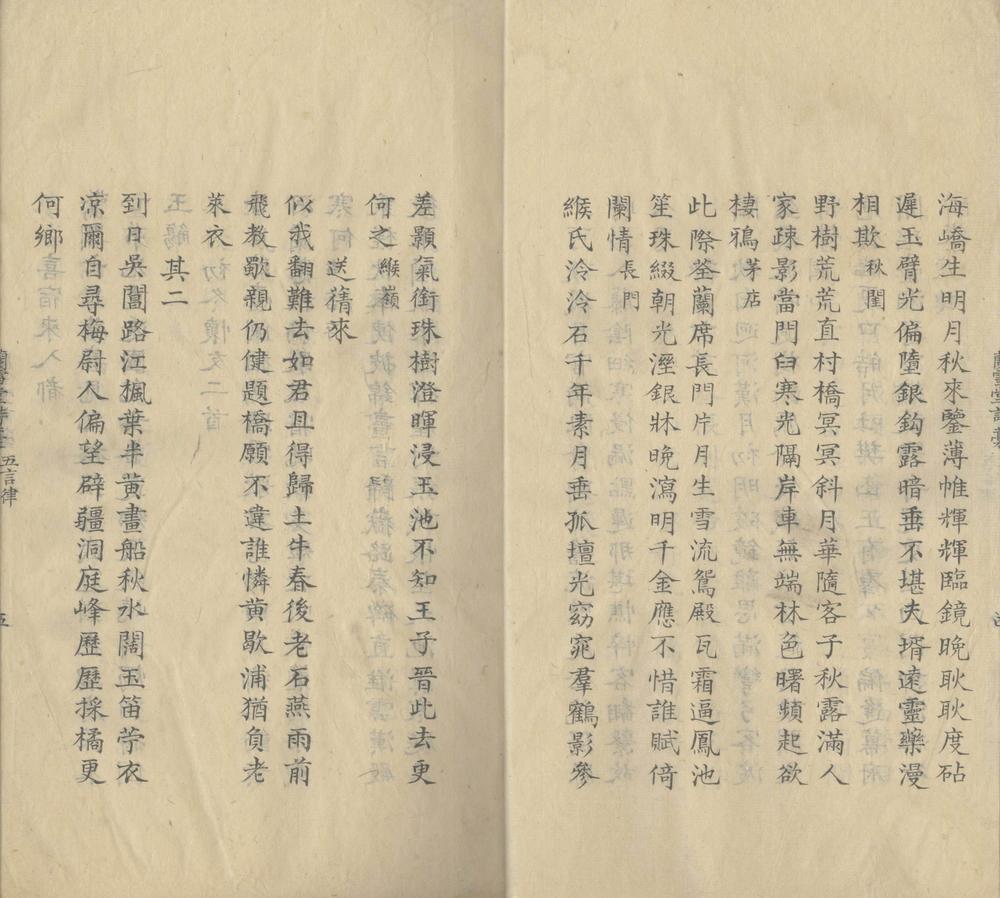 海嶠生明月秋來鑒薄帷輝輝臨鏡晚耿耿度砧
遲玉臂光偏墮銀鈎露暗垂不堪夫壻遠靈藥漫
相欺秋閨
野樹荒荒直村橋冥冥斜月華隨客子秋露滿人
家疎影當門臼寒光隔岸車無端林色曙頻起欲
棲鴉茅店
此際荃蘭席長門片月生雪流鴛殿瓦霜逼鳳池
笙珠綴朝光溼銀牀晚瀉明千金應不惜誰賦倚
闌情長門
緱氏泠泠石千年素月垂孤壇光窈窕羣鶴影參
差顥氣銜珠樹澄暉浸玉池不知王子晉此去更
何之緱嶺
送蒨來
似我翻難去如君且得歸土牛春後老石燕雨前
飛教歇親仍健題橋願不違誰憐黄歇浦猶負老
萊衣
其二
到日吳閶路江楓葉半黄畫船秋水闊玉笛苧衣
凉爾自尋梅尉人偏望辟疆洞庭峰歷歷採橘更
何鄉
五言律
五